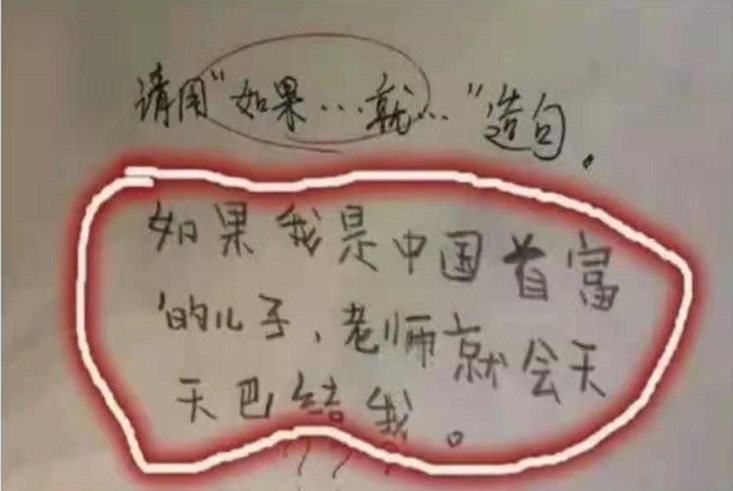 请用“如果…就…”造句。
如果我是中国首富
的儿子，老师就会天
天巴结我。
???